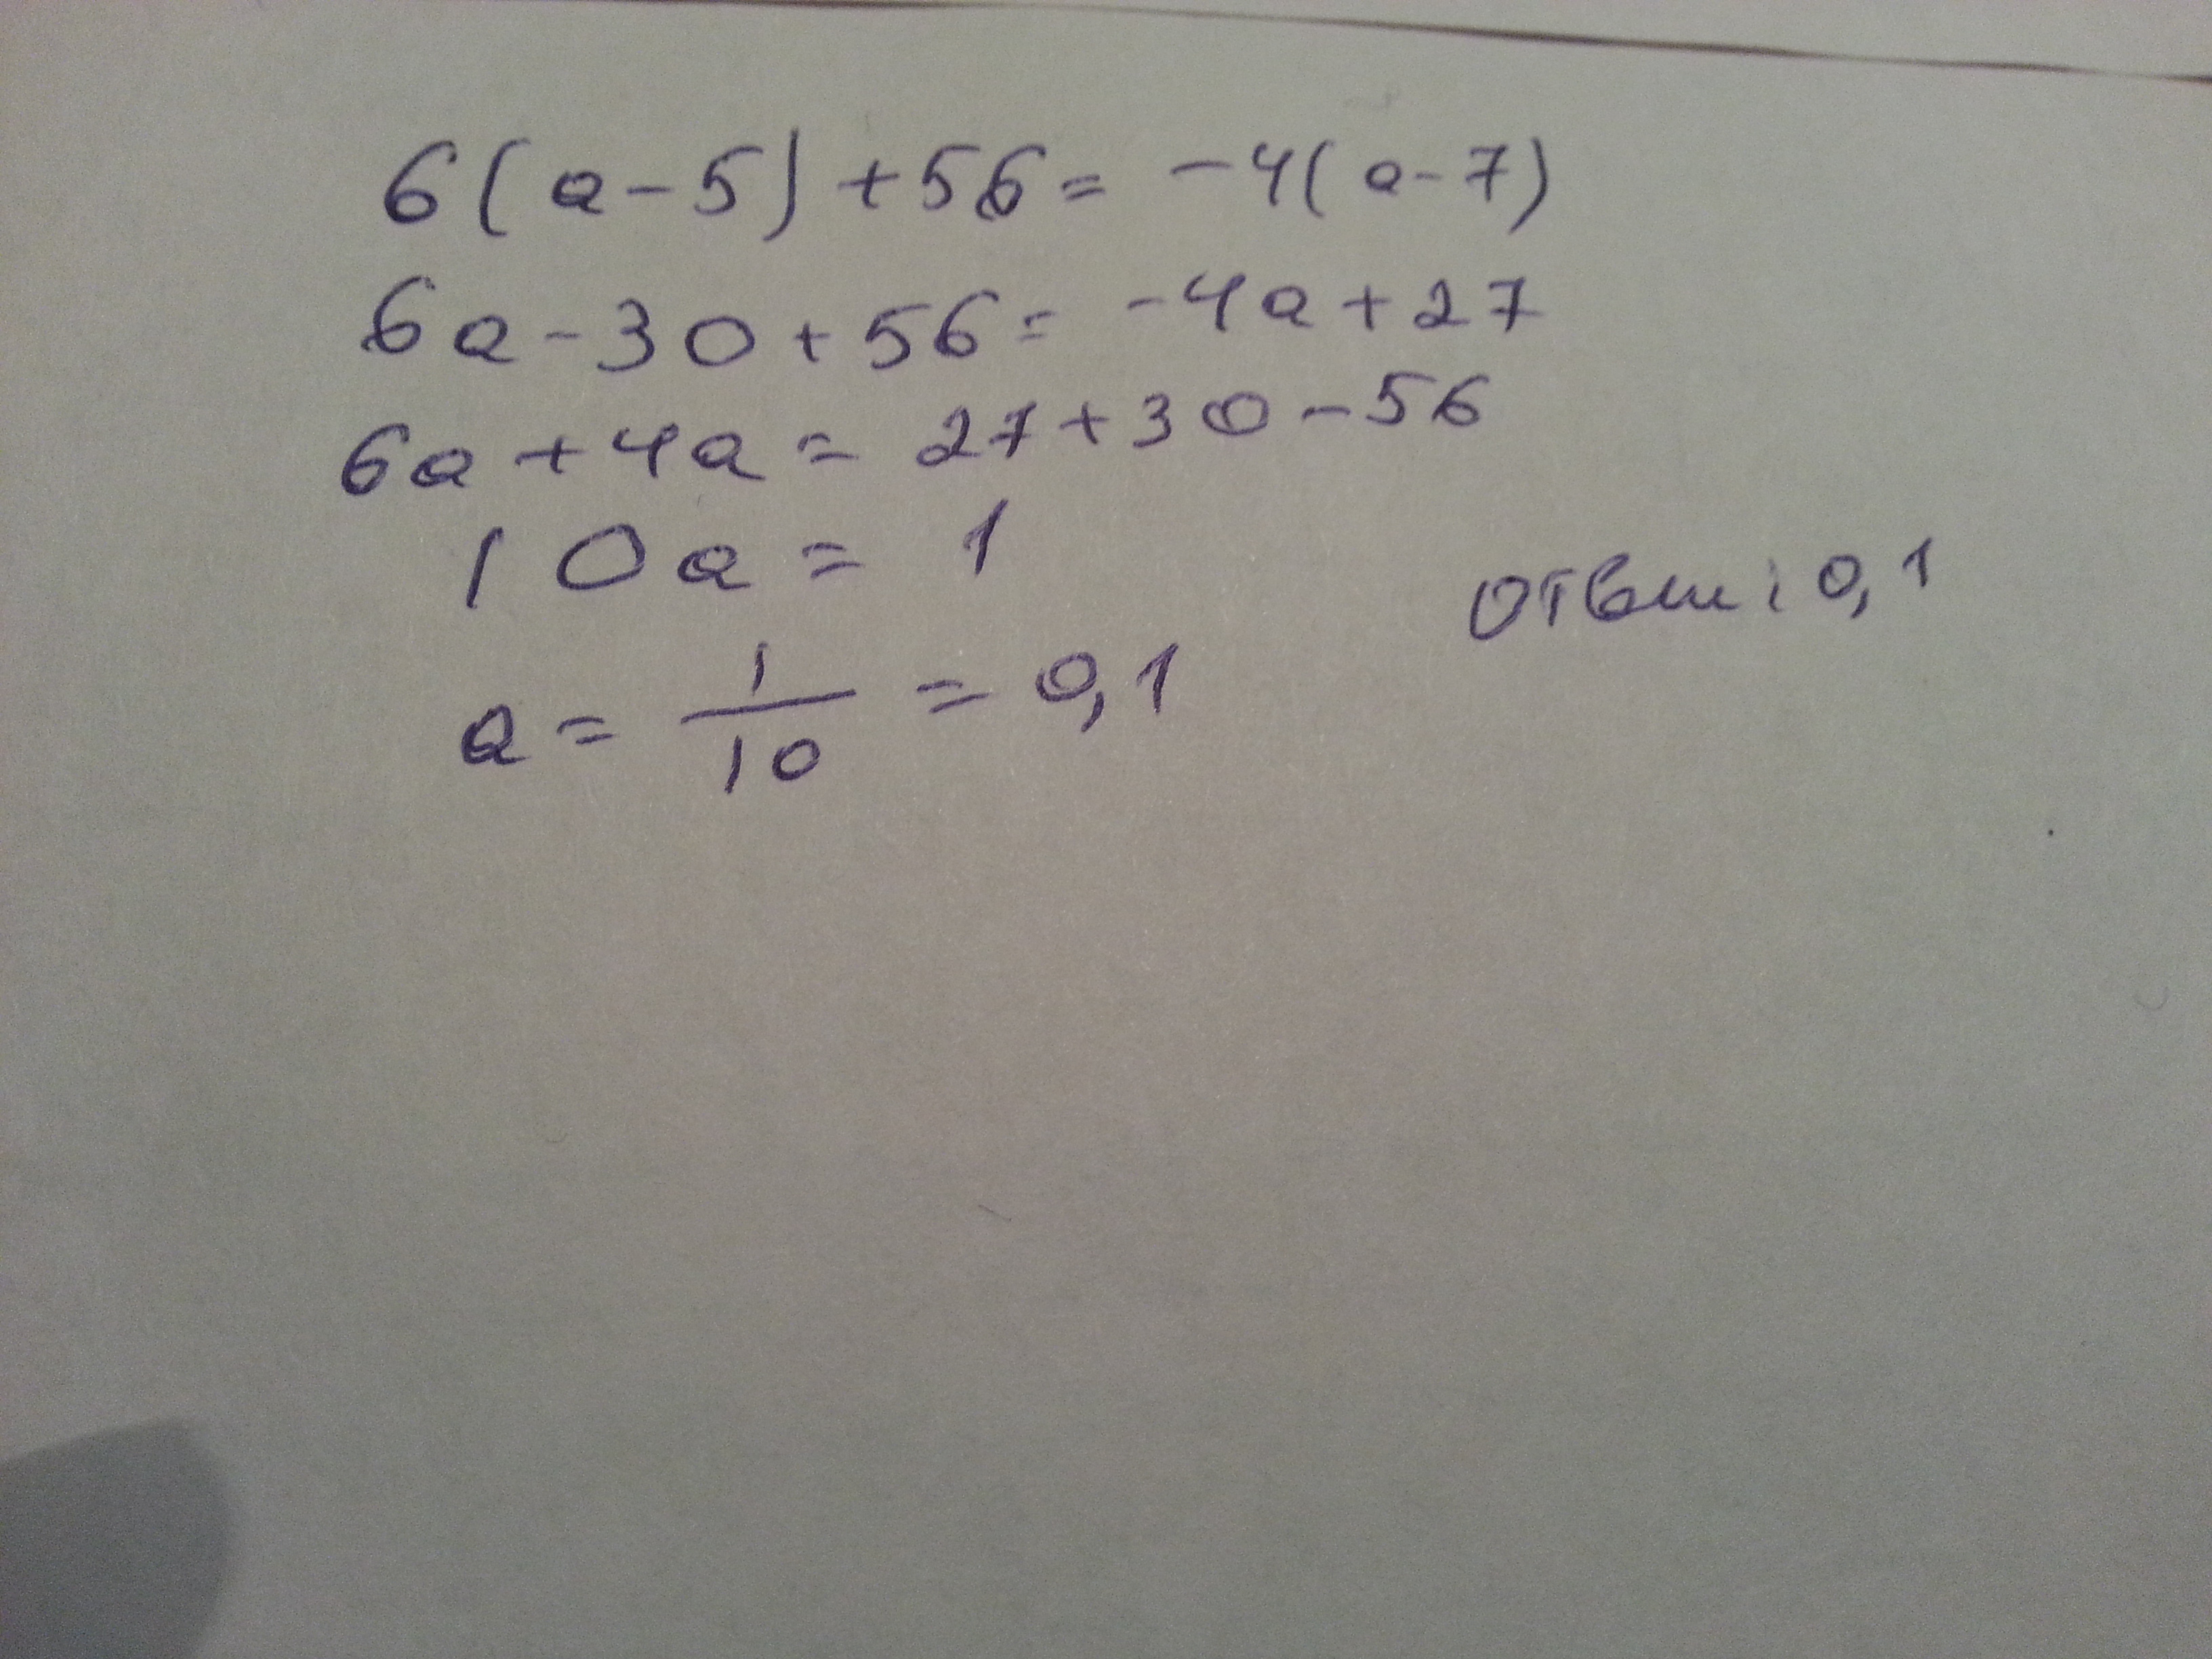 6(a-5)+56= -4(a-7)
6a-30+56= -4a+27
6a+4a= 27+30-56
10a= 1
a= 1/10 = 0,1
Ответ: 0,1